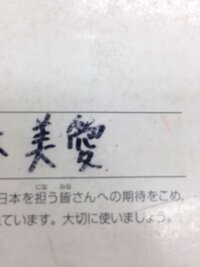 美愛
日本を担う皆さんへの期待をこめ、
ています。大切に使いましょう。